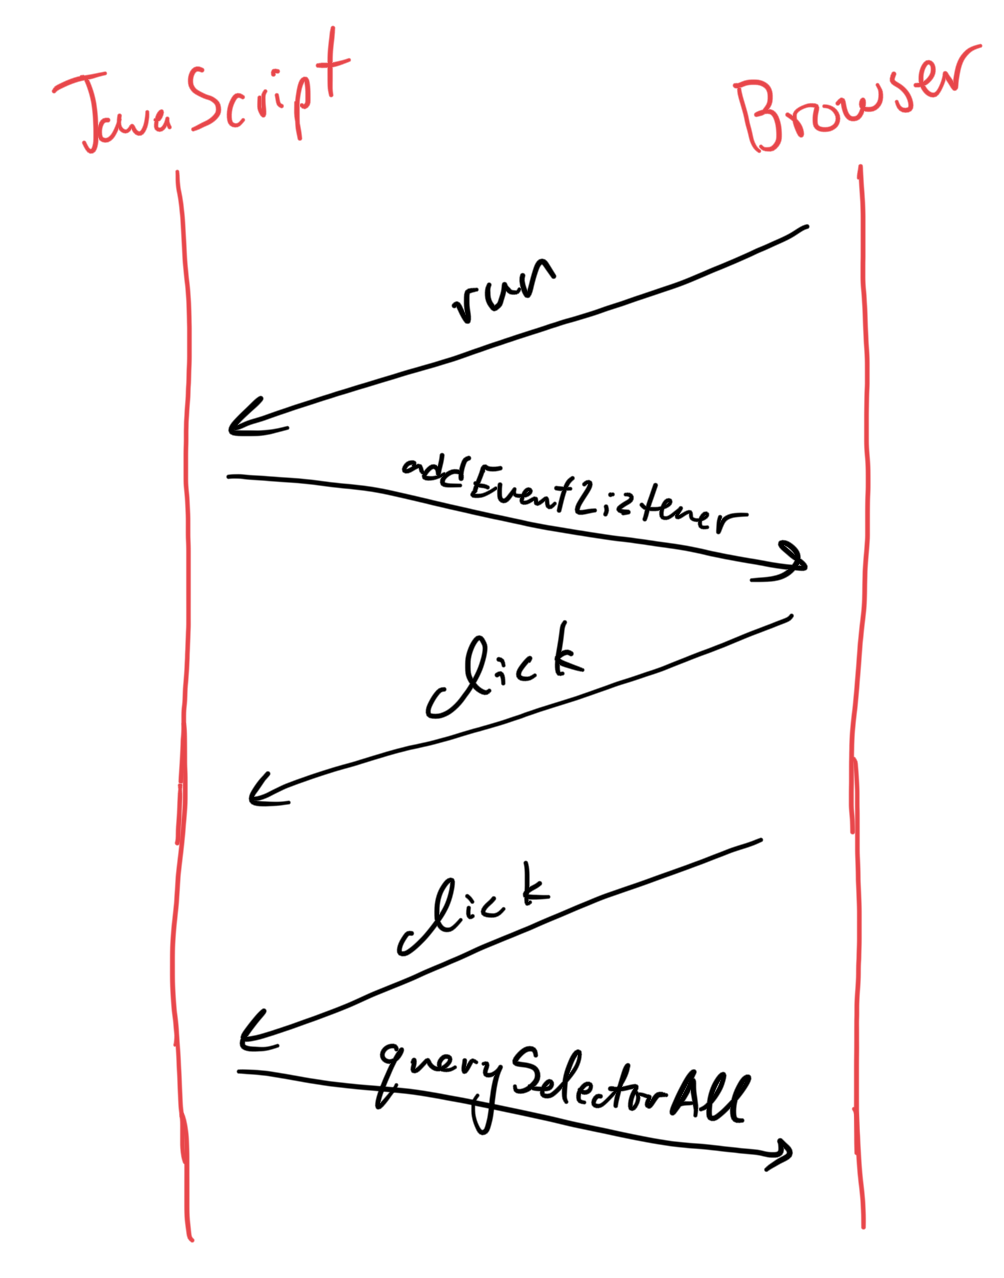 JavaScript
Browser
run
addEventListener
click
click
querySelectorAll